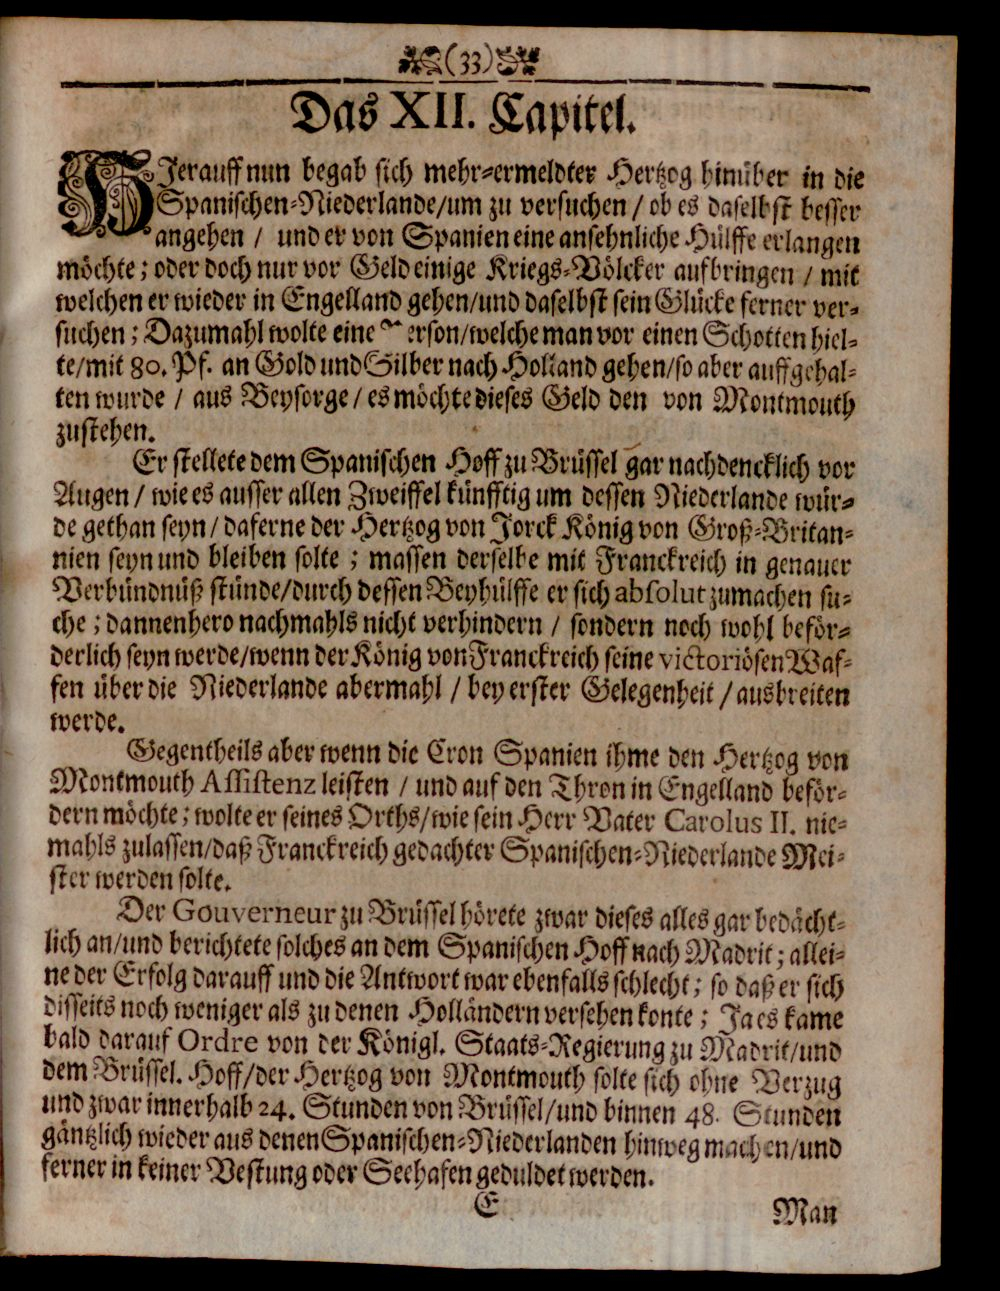 (33)
Das XII. Capitel.
HIerauff nun begab sich mehr-ermeldter Hertzog hinüber in die
Spanischen-Niederlande/um zu versuchen / ob es daselbst besser
angehen / und er von Spanien eine ansehnliche Hülffe erlangen
möchte; oder doch nur vor Geld einige Kriegs-Völcker aufbringen / mit
welchen er wieder in Engelland gehen/und daselbst sein Glücke ferner ver-
suchen; Dazumahl wolte eine erson/welche man vor einen Schotten hiel-
te/mit 80. Pf. an Gold und Silber nach Holland gehen/so aber auffgehal-
ten wurde / aus Beysorge / es möchte dieses Geld den von Montmouth
zustehen.
Er stellete dem Spanischen Hoff zu Brüssel gar nachdencklich vor
Augen / wie es ausser allen Zweiffel künfftig um dessen Niederlande wür-
de gethan seyn / daferne der Hertzog von Jorck König von Groß-Britan-
nien seyn und bleiben solte ; massen derselbe mit Franckreich in genauer
Verbündnüß stünde/durch dessen Beyhülffe er sich absolut zumachen su-
che ; dannenhero nachmahls nicht verhindern / sondern noch wohl beför-
derlich seyn werde/wenn der König von Franckreich seine victoriösen Waf-
fen über die Niederlande abermahl / bey erster Gelegenheit / ausbreiten
werde.
Gegentheils aber wenn die Cron Spanien ihme den Hertzog von
Montmouth Assistenz leisten / und auf den Thron in Engelland beför-
dern möchte; wolte er seines Orths/wie sein Herr Vater Carolus II. nie-
mahls zulassen/daß Franckreich gedachter Spanischen-Niederlande Mei-
ster werden solte.
Der Gouverneur zu Brüssel hörete zwar dieses alles gar bedächt-
lich an/und berichtete solches an dem Spanischen Hoff nach Madrit; allei-
ne der Erfolg darauff und die Antwort war ebenfalls schlecht; so daß er sich
disseits noch weniger als zu denen Holländern versehen konte; Ja es kame
bald darauf Ordre von der Königl. Staats-Regierung zu Madrit/und
dem Brüssel. Hoff/der Hertzog von Montmouth solte sich ohne Verzug
und zwar innerhalb 24. Stunden von Brüssel/und binnen 48. Stunden
gäntzlich wieder aus denen Spanischen-Niederlanden hinweg machen/und
ferner in keiner Vestung oder Seehafen geduldet werden.
E
Man